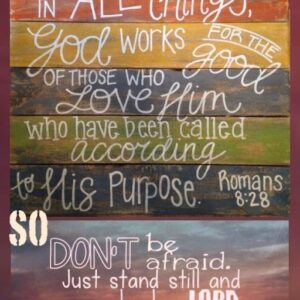 IN ALL things,
God WORKS FOR THE
good
OF THOSE WHO
Love Him
who have been called
according
to His Purpose. Romans
8:28
SO
DON'T be
afraid.
Just stand still and
LORD